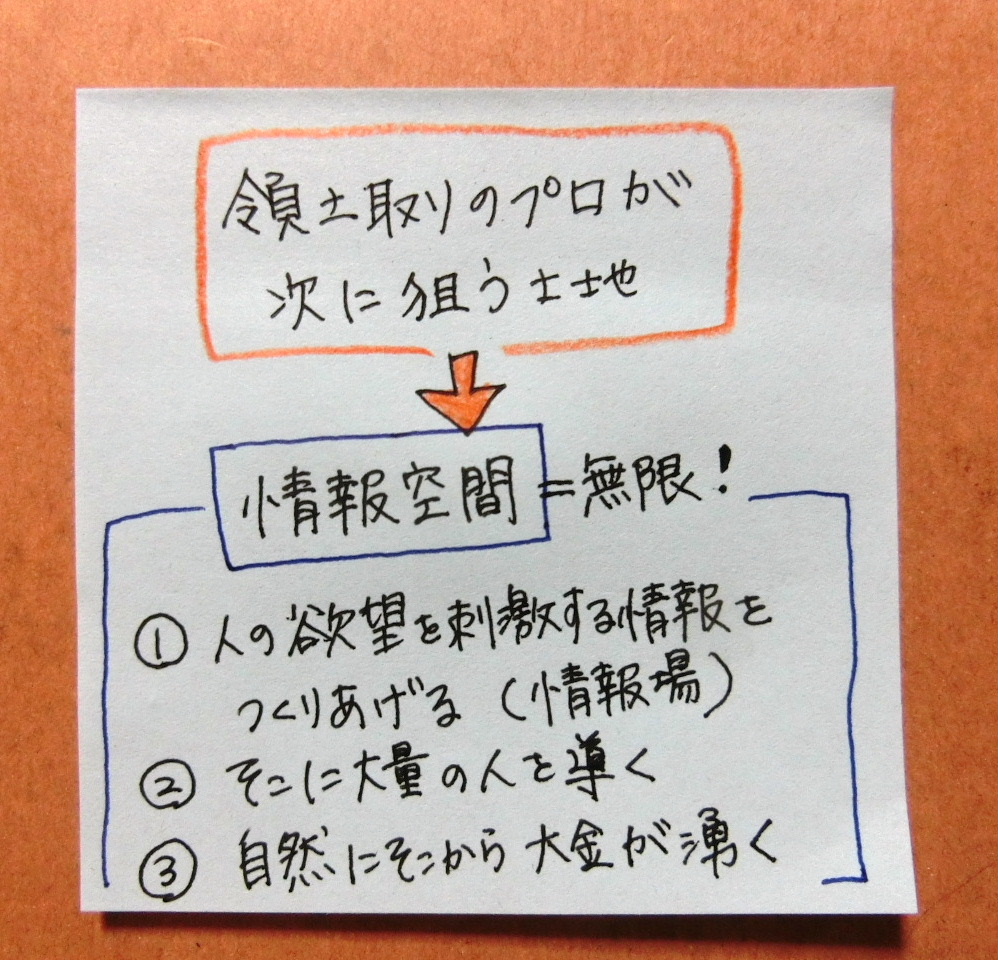 領土取りのプロが
次に狙う土地
情報空間=無限!
① 人の欲望を刺激する情報を
つくりあげる (情報場)
② そこに大量の人を導く
③ 自然にそこから大金が湧く